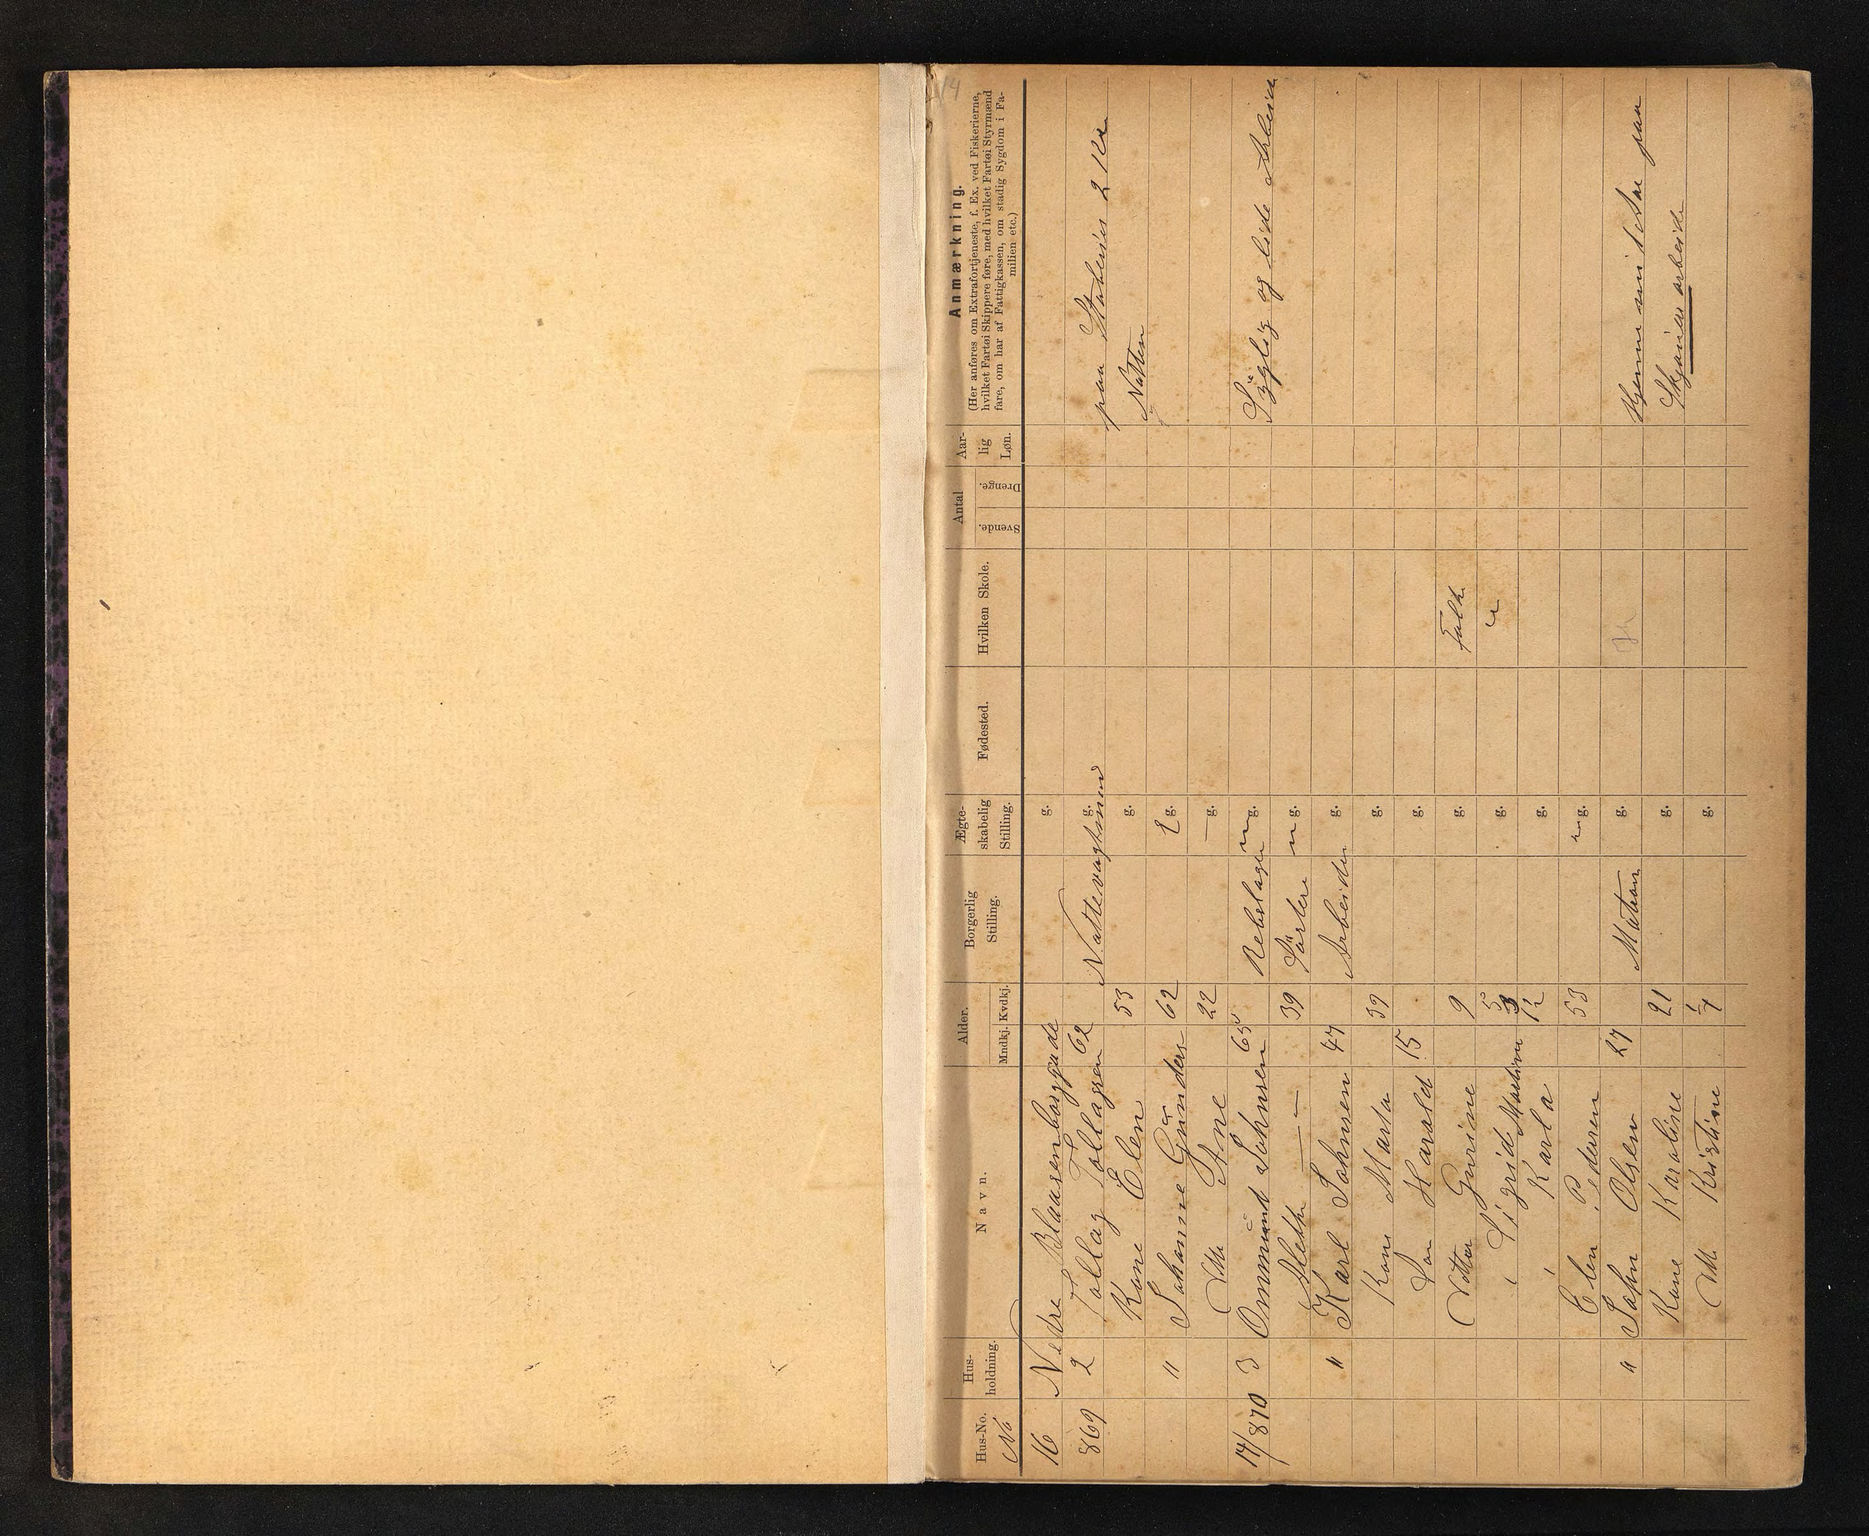 Hus-No. No
Hus-holdning.
Navn.
Alder.
Mndkj. Kvdkj.
Borgerlig Stilling.
Ægte-skabelig Stilling.
Fødested.
Hvilken Skole.
Antal
Svende. Drenge.
Aar-lig Løn.
Anmærkning.
(Her anføres om Extrafortjeneste, f. Ex. ved Fiskerierne,
hvilket Fartøi Skippere føre, med hvilket Fartøi Styrmænd
fare, om har af Fattigkassen, om stadig Sygdom i Fa-
milien etc.)
16 Nedre Blaasenborggade g.
869 2 Tollag Tollagsen 62 Nattevagtmand g. paa 2 Kr
Kone Elen 53 g. Natten
" Johanne Gunders 62 g.
Ane 22 — g.
14/870 3 Ommund Johnsen 65 Rebslager g. Syglig og lide Arbeide
Alethe — 39 g.
" Karl Johnsen 47 Arbeider g.
Kone Marta 39 g.
Søn Harald 15 g.
Dotter Gurine 9 g. Folke
, Sigrid Martine 5 3 g. "
, Karla 1½ g.
Elen Pedersen 53 g.
" John Olsen 27 Matros g. Hjemme 1 Aar paa
Kone Karoline 21 g. arbeide
Kristine g.